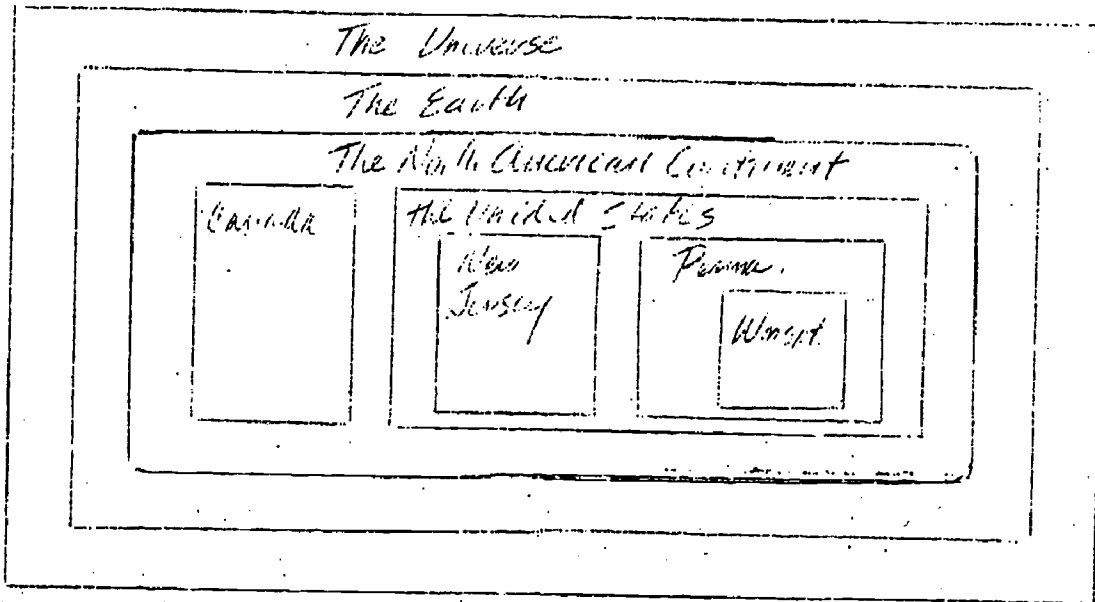 The Universe
The Earth
The North American Continent
Canada
the United States
New
Jersey
Penna.
Wmspt.